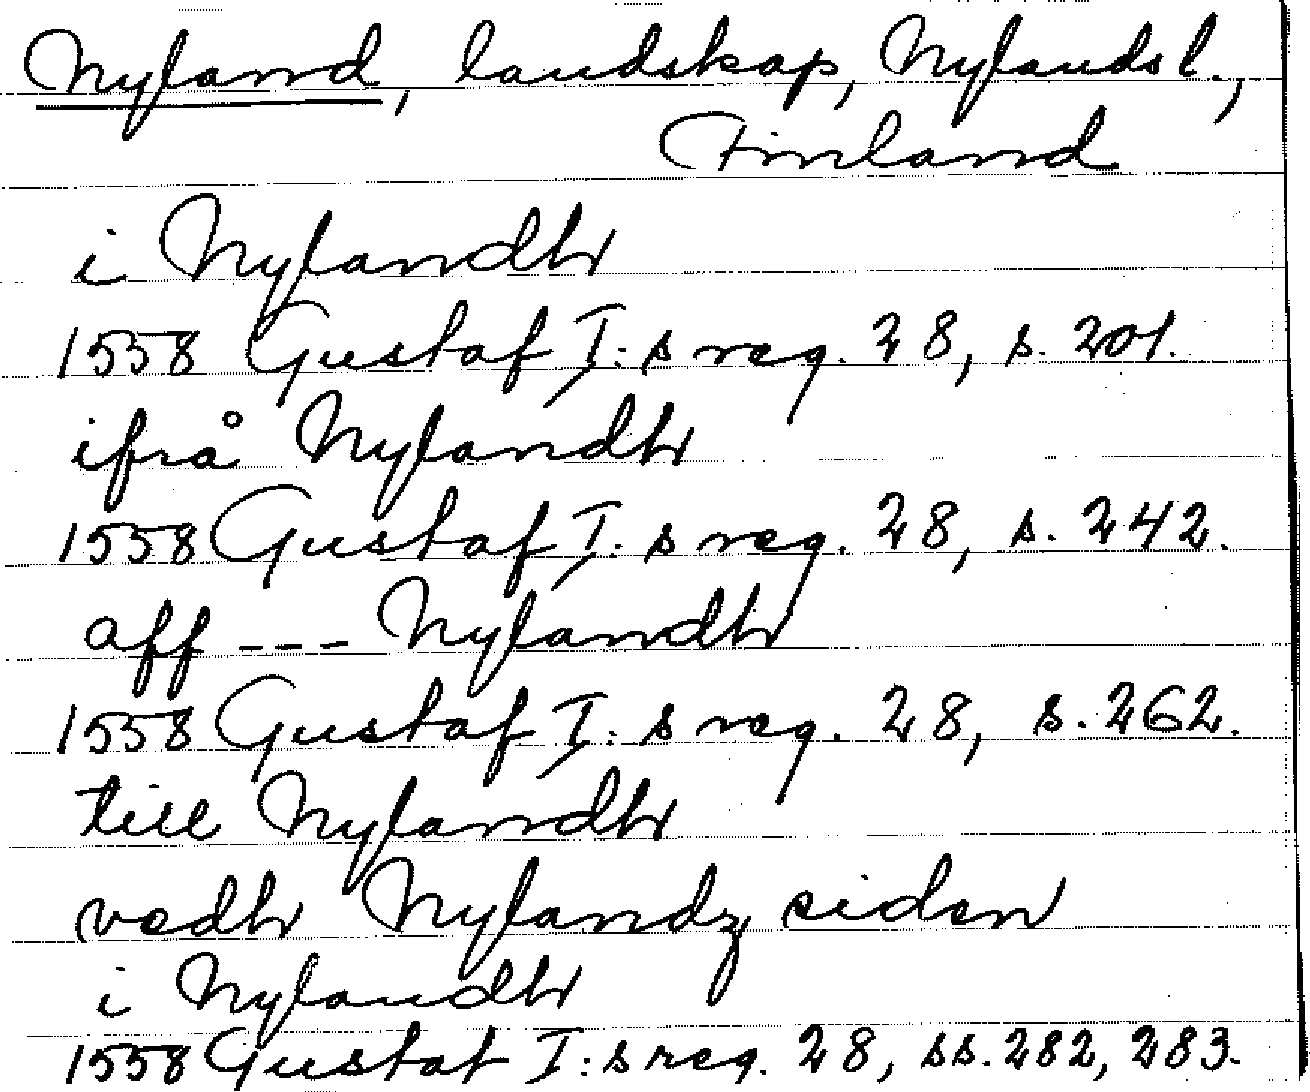 Nyland, landskap, Nylands l.,
Finland
i Nylandh
1558 Gustaf I:s reg. 28, s. 201.
ifrå Nylandh
1558 Gustaf I:s reg. 28, s. 242.
aff --- Nylandh
1558 Gustaf I:s reg. 28, s. 262.
till Nylandh
vedh Nylandz siden
i Nylandh
1558 Gustaf I:s reg. 28, ss. 282, 283.